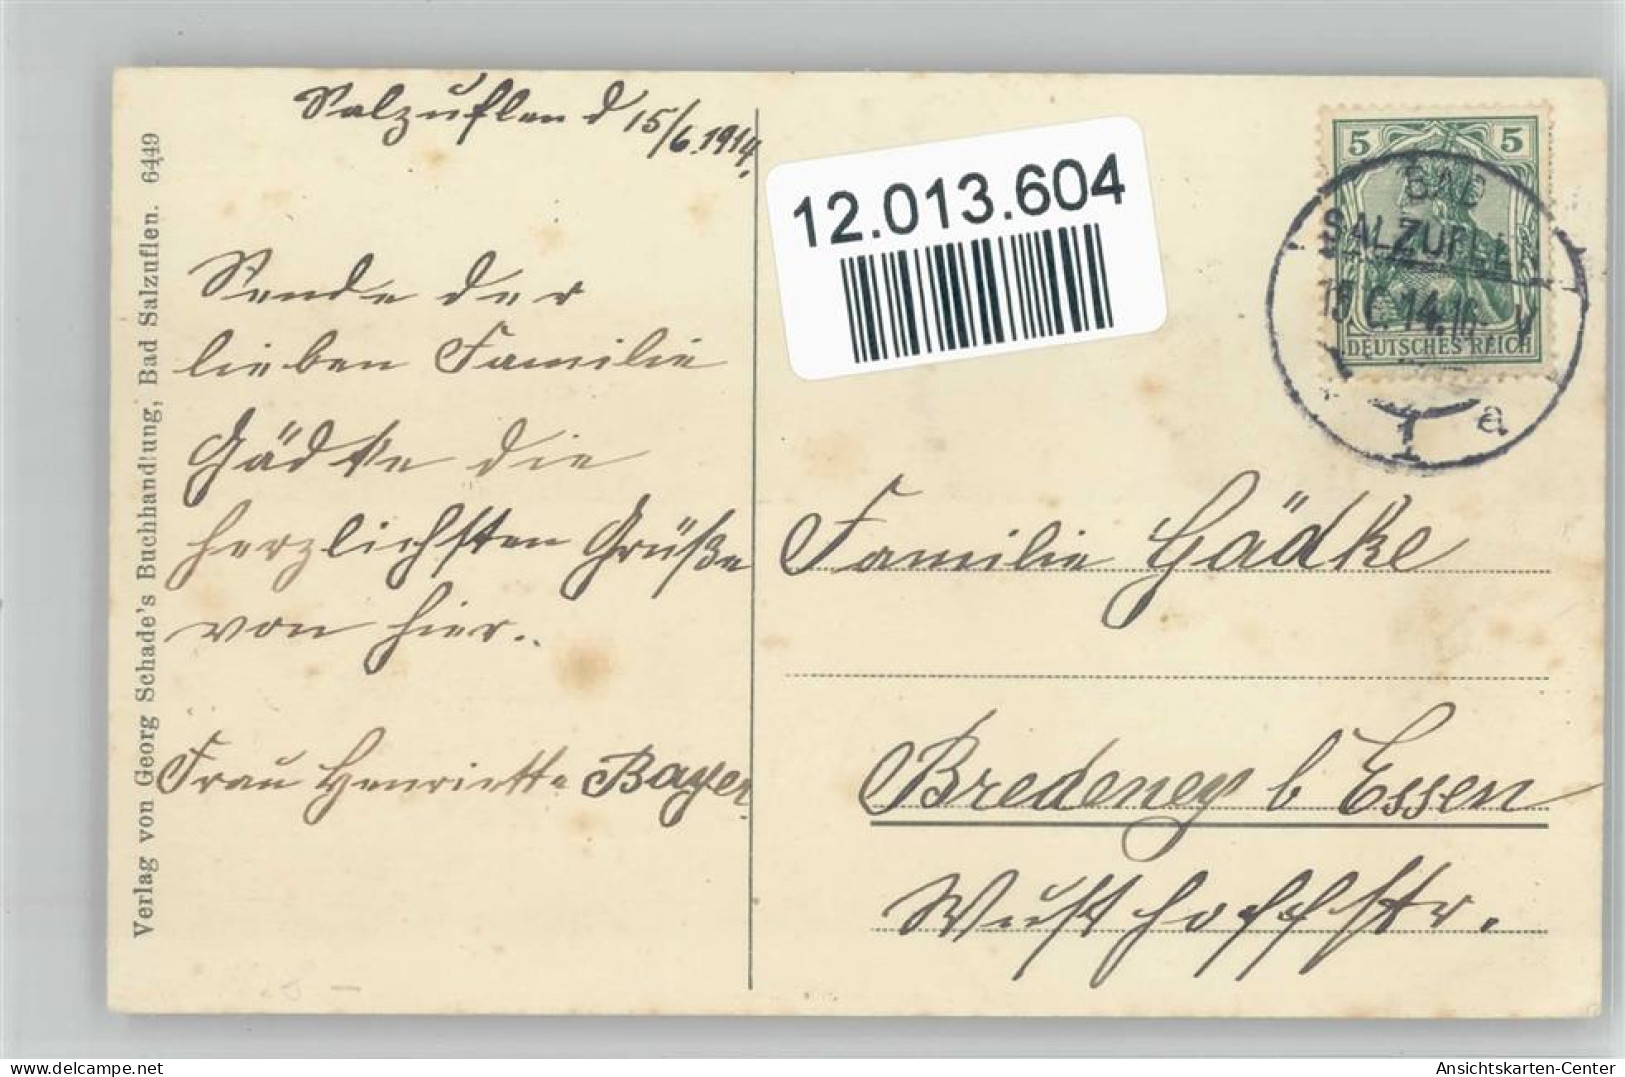 Salzuflen d 15/6.1914.
Sende der
lieben Familie
Gädke die
herzlichsten Grüße
von hier.
Frau Henriette Bayer
Verlag von Georg Schade's Buchhandlung, Bad Salzuflen. 6449
12.013.604
5 5
DEUTSCHES REICH
BAD
SALZUFLEN
14.
V
1 a
Familie Gädke
Bredeney b Essen
Wusthoffstr.
Ansichtskarten-Center